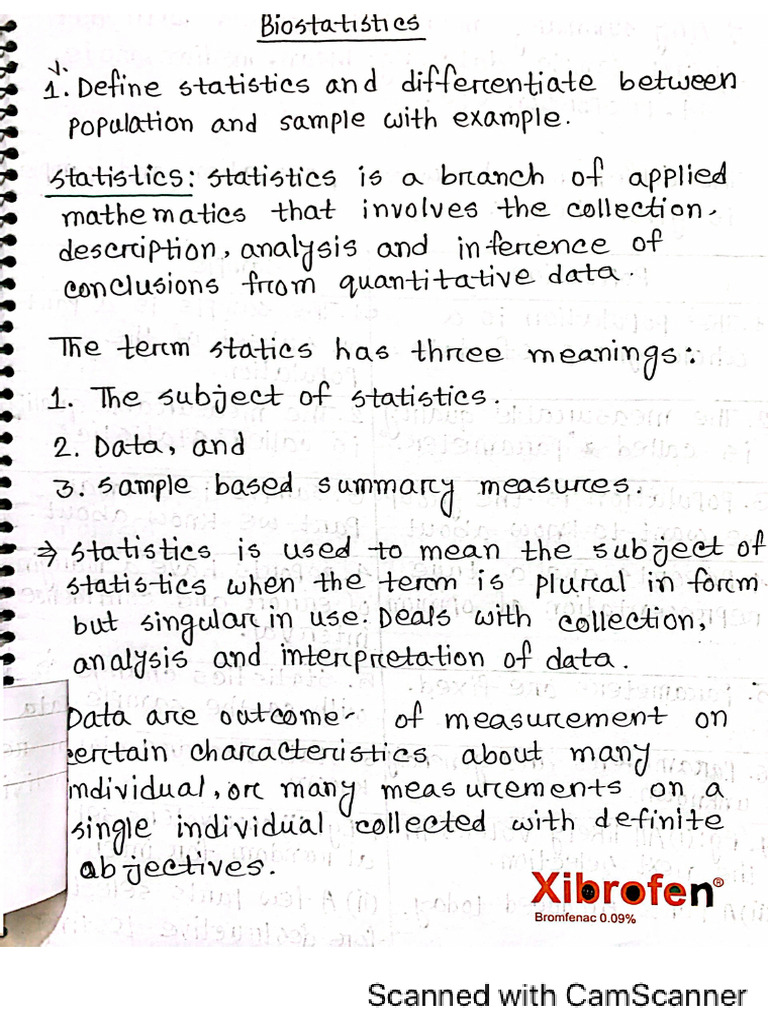 Biostatistics
1. Define statistics and differentiate between
population and sample with example.
Statistics: Statistics is a branch of applied
mathematics that involves the collection,
description, analysis and inference of
conclusions from quantitative data.
The term statics has three meanings:
1. The subject of statistics.
2. Data, and
3. Sample based summary measures.
⇒ Statistics is used to mean the subject of
statistics when the term is plural in form
but singular in use. Deals with collection,
analysis and interpretation of data.
Data are outcome of measurement on
certain characteristics about many
individual, or many measurements on a
single individual collected with definite
abjectives.
Xibrofen®
Bromfenac 0.09%
Scanned with CamScanner